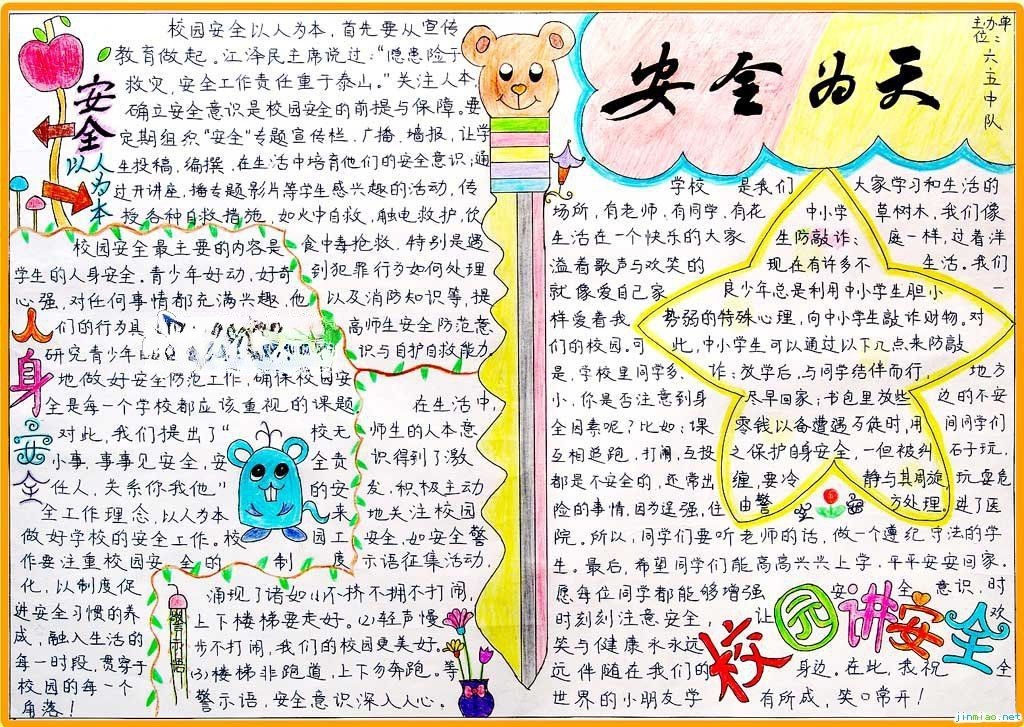 安全为天
主办单位：六·五中队
安全
以人为本
校园安全以人为本，首先要从宣传
教育做起。江泽民主席说过：“隐患险于
救灾，安全工作责任重于泰山。”关注人本，
确立安全意识是校园安全的前提与保障。要
定期组织“安全”专题宣传栏、广播、墙报，让学
生投稿、编撰，在生活中培育他们的安全意识；通
过开讲座、播专题影片等学生感兴趣的活动，传
授各种自救措施，如火中自救、触电救护、饮
食中毒抢救，特别是遇
到犯罪行为如何处理
以及消防知识等，提
高师生安全防范意
识与自护自救能力。
人身安全
校园安全最主要的内容是
学生的人身安全。青少年好动，好奇
心强，对任何事情都充满兴趣，他
们的行为具
研究青少年
地做好安全防范工作，确保校园安
全是每一个学校都应该重视的课题
对此，我们提出了“校无
小事，事事见安全，安全责
任人，关系你我他”的安
全工作理念，以人为本，来
做好学校的安全工作。校园工
作要注重校园安全的制度
化，以制度促
进安全习惯的养
成，融入生活的
每一时段，贯穿于
校园的每一个
角落！
在生活中，
师生的人本意
识得到了激
发，积极主动
地关注校园
安全，如安全警
示语征集活动，
涌现了诸如⑴不挤不拥不打闹，
上下楼梯要走好。⑵轻声慢
步不打闹，我们的校园更美好。
⑶楼梯非跑道，上下勿奔跑。等
警示语，安全意识深入人心。
警示语
学校是我们大家学习和生活的
场所，有老师、有同学、有花草树木，我们像
生活在一个快乐的大家庭一样，过着洋
溢着歌声与欢笑的生活。我们
就像爱自己家一
样爱着我
们的校园。可
是，学校里同学多、地方
小，你是否注意到身边的不安
全因素呢？比如：课间同学们
互相追跑、打闹，互投石子玩，
都是不安全的，还常出玩耍危
险的事情，因为逞强，住进了医
院。所以，同学们要听老师的话，做一个遵纪守法的学
生。最后，希望同学们能高高兴兴上学，平平安安回家。
愿每位同学都能够增强安全意识，时
时刻刻注意安全，让欢
笑与健康永永远
远伴随在我们的身边。在此，我祝全
世界的小朋友学有所成，笑口常开！
中小学
生防敲诈：
现在有许多不
良少年总是利用中小学生胆小
势弱的特殊心理，向中小学生敲诈财物。对
此，中小学生可以通过以下几点来防敲
诈：放学后，与同学结伴而行，
尽早回家；书包里放些
零钱以备遭遇歹徒时，用
之保护自身安全，一但被纠
缠，要冷静与其周旋，
由警方处理。
校园讲安全
jinmiao.net